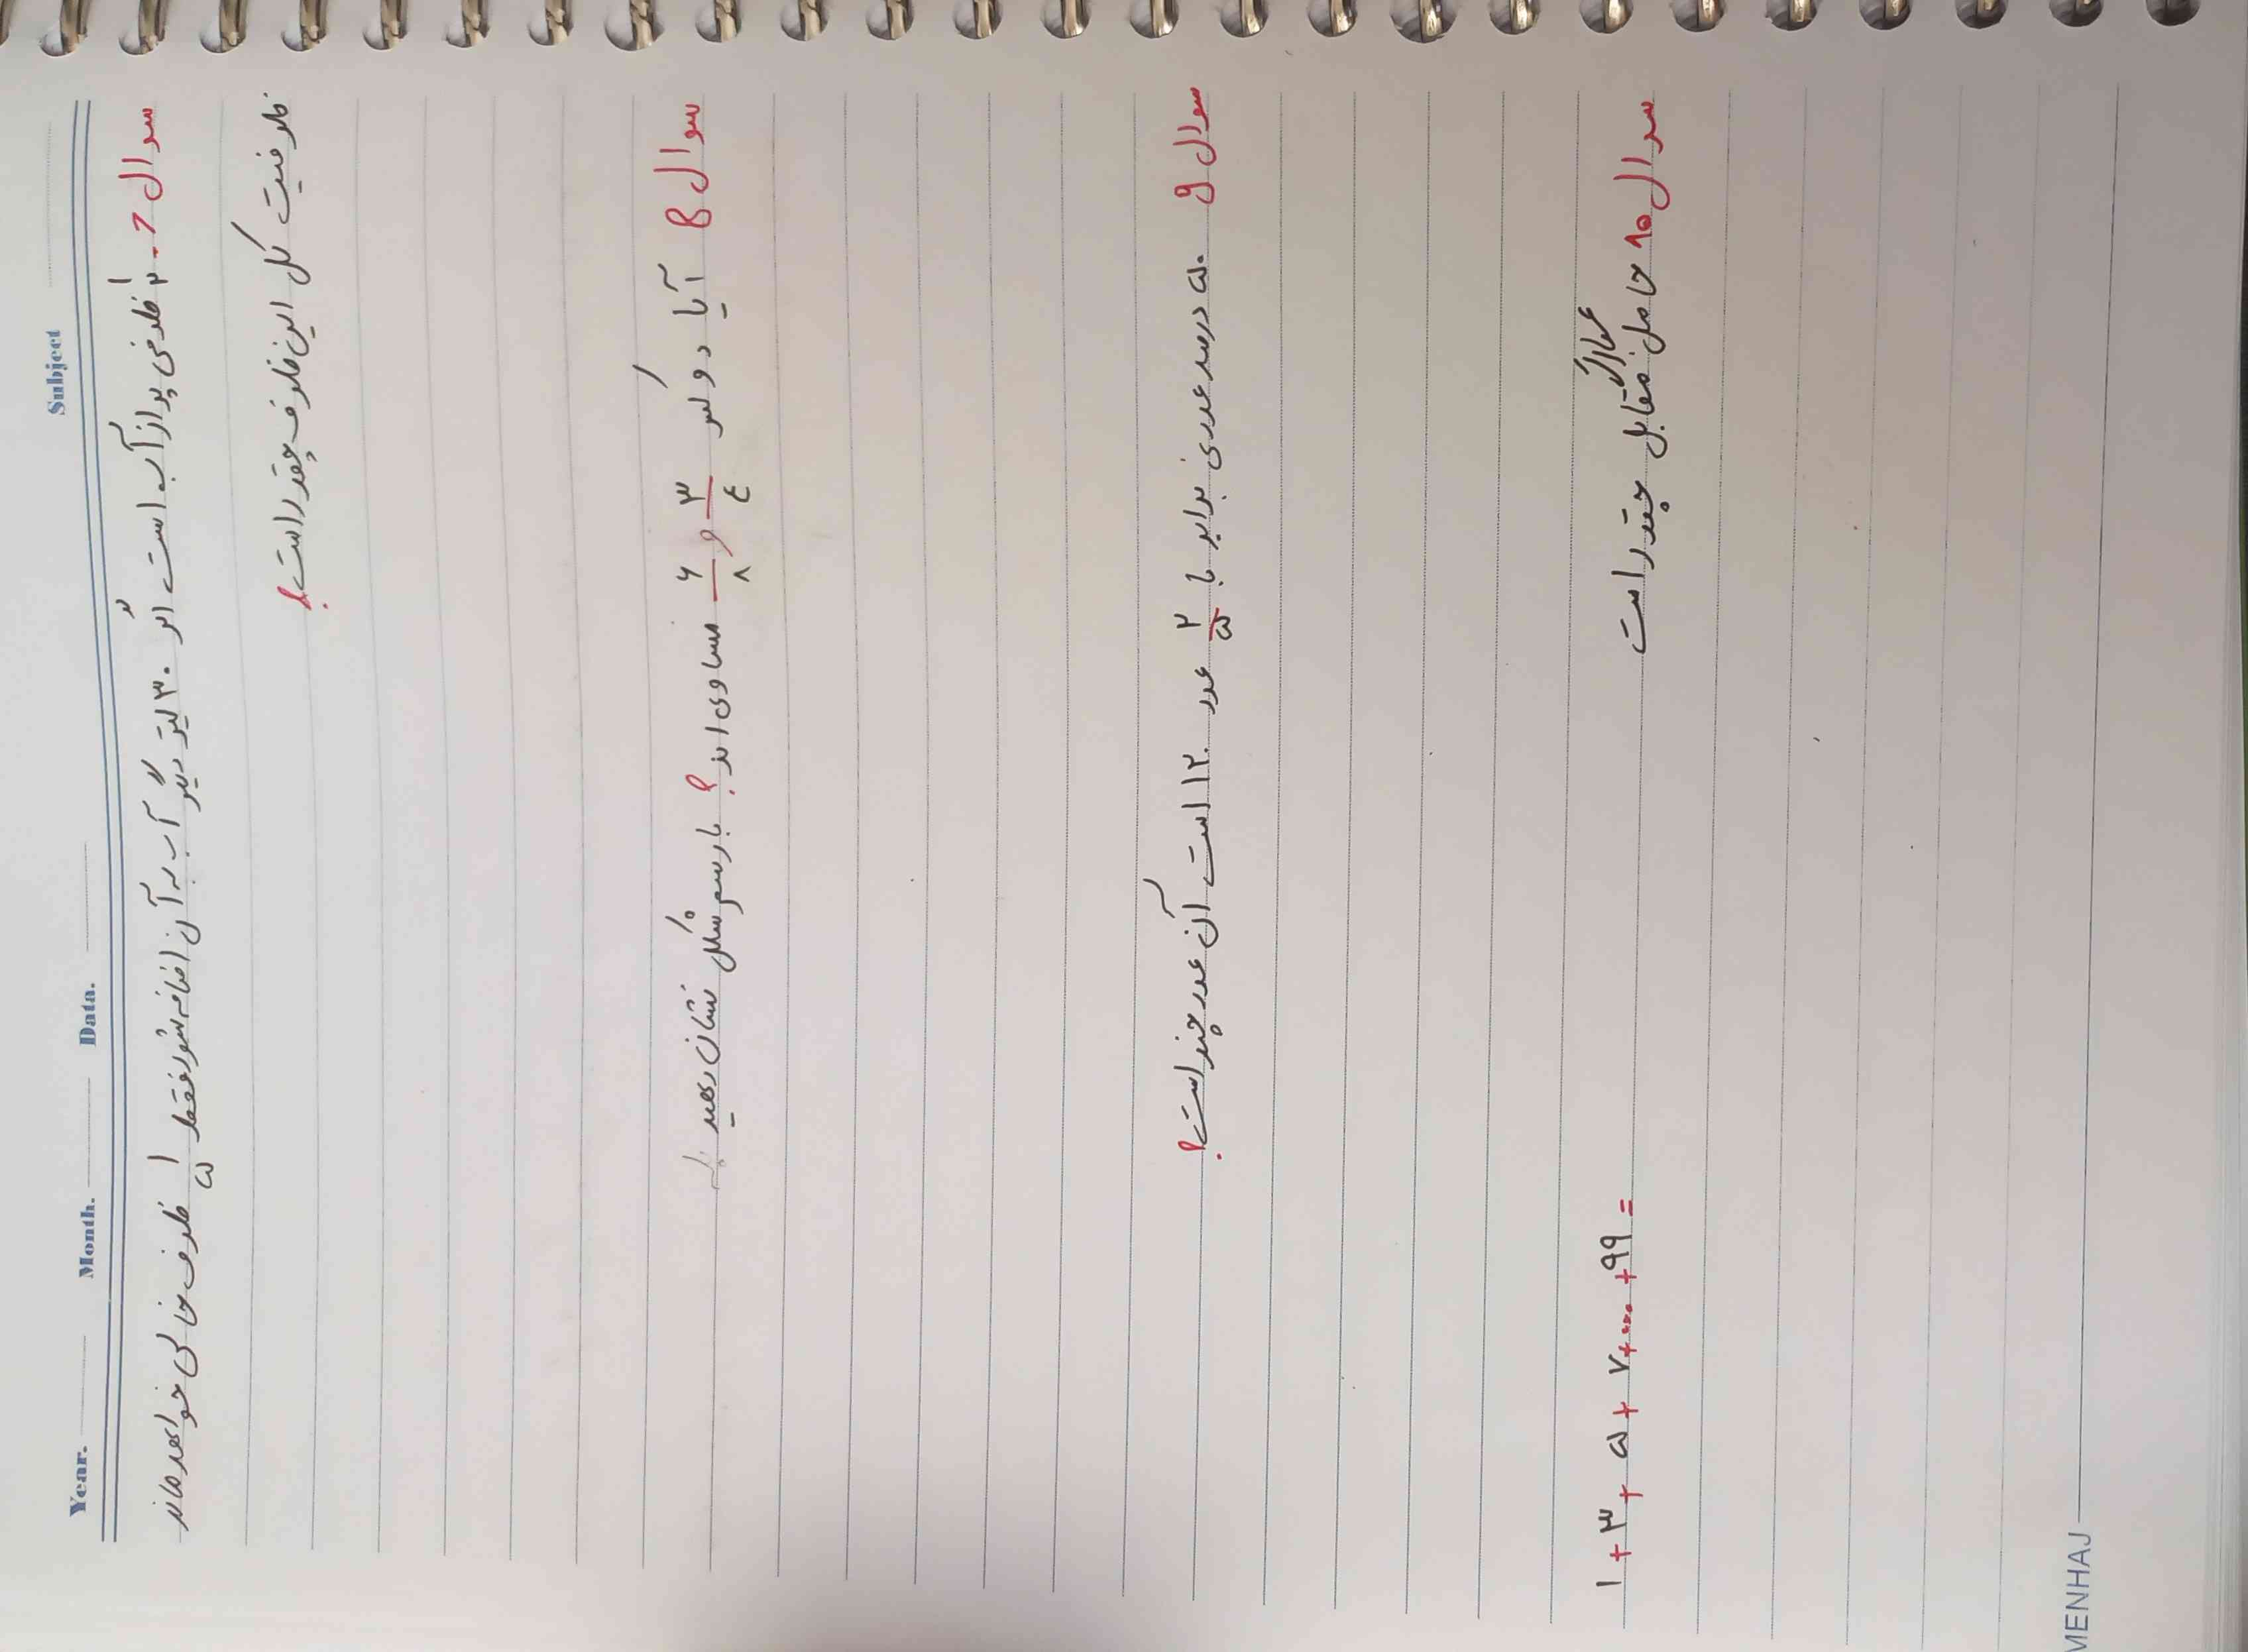 Subject
Year. Month. Data.
سوال 7- ۱/۲ ظرفی پر از آب است اگر ۳۰ لیتر دیگر آب به آن اضافه شود فقط ۱/۵ ظرف خالی خواهد ماند
ظرفیت کل این ظرف چقدر است؟
سوال 8 آیا دو کسر ۳/۴ و ۶/۸ مساوی اند؟ با رسم شکل نشان دهید
سوال 9 ۵۰ درصد عددی برابر با ۲/۵ عدد ۱۲۰ است آن عدد چند است؟
سوال 10 حاصل عبارت مقابل چقدر است
۱ + ۳ + ۵ + ۷ + .... + ۹۹ =
MENHAJ